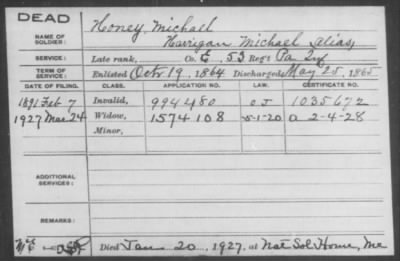 DEAD
NAME OF SOLDIER: Honey, Michael
Harrigan Michael alias,
SERVICE: Late rank, Co. E, 53 Reg't Pa. Inf
TERM OF SERVICE: Enlisted Oct. 19, 1864 Discharged May 25, 1865
DATE OF FILING. CLASS. APPLICATION NO. LAW. CERTIFICATE NO.
1891 Feb 7 Invalid, 994480 O J 1035672
1927 Mar 24 Widow, 1574108 5-1-20 a 2-4-28
Minor,
ADDITIONAL SERVICES:
REMARKS:
Died Jan 20, 1927, at Nat Sol Home, Me